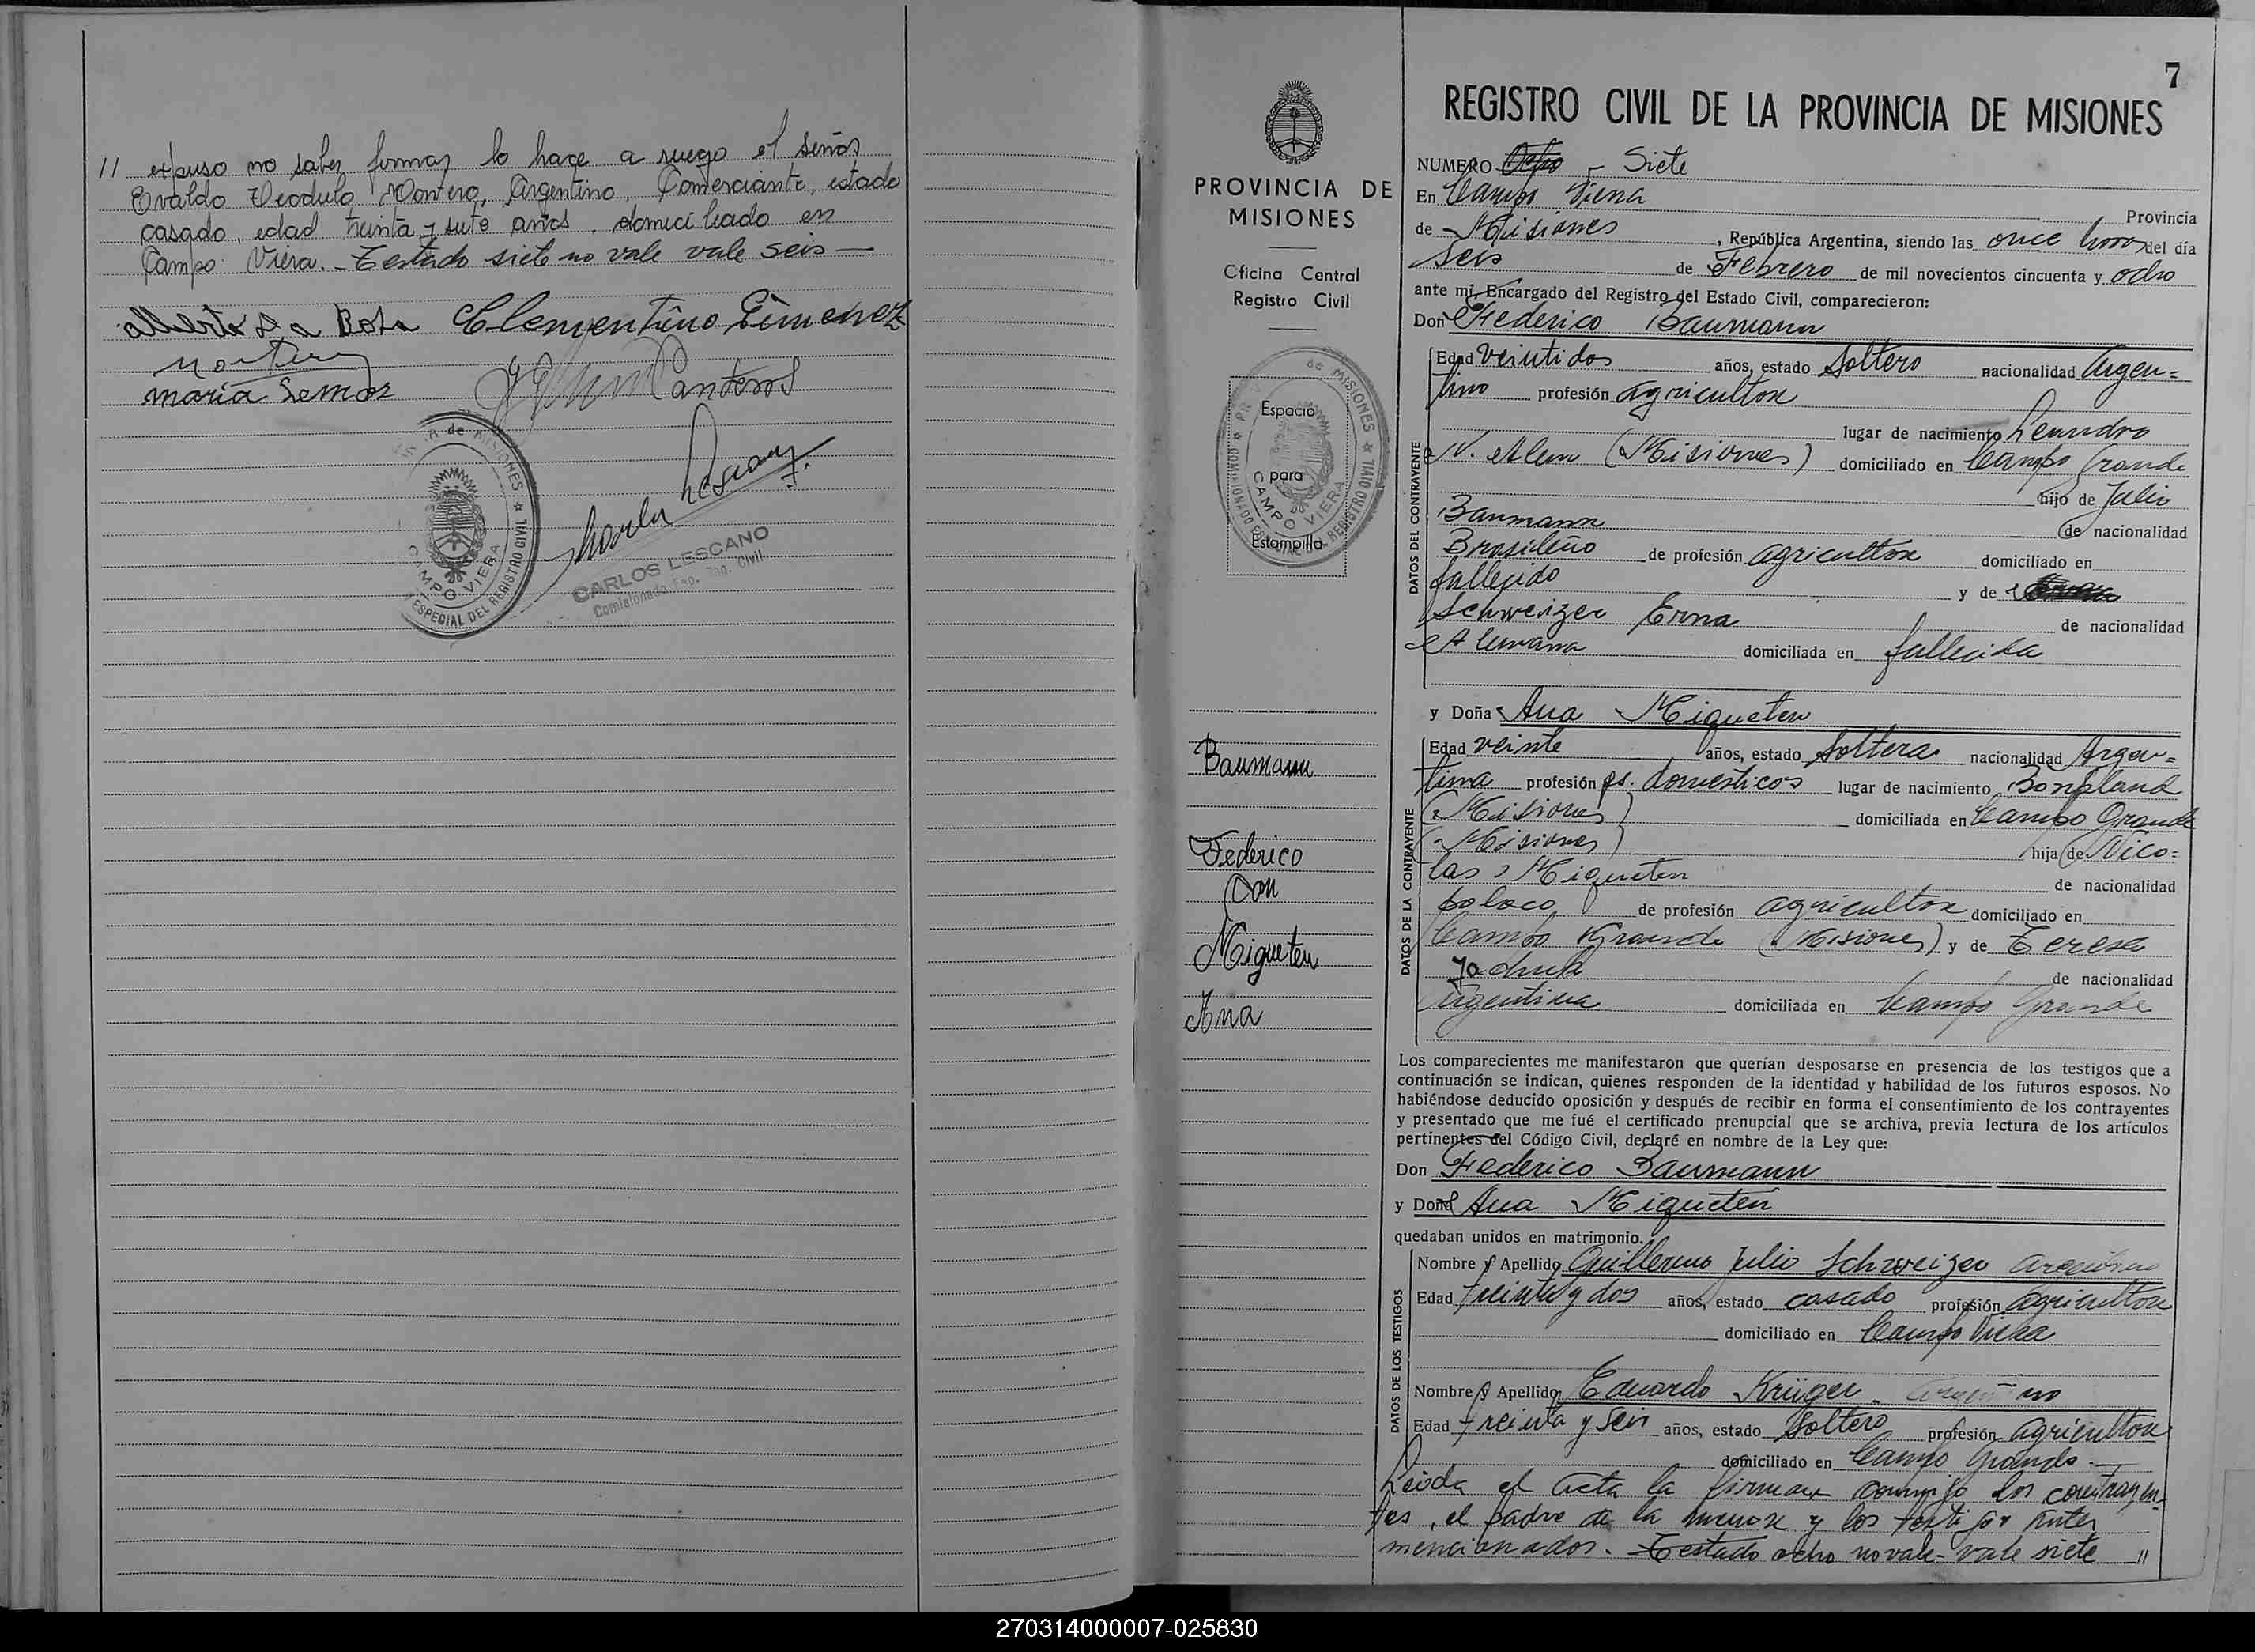 // expuso no saber firmar lo hace a ruego el señor
Evaldo Teodulo Montero, Argentino, Comerciante, estado
casado, edad treinta y siete años, domiciliado en
Campo Viera. - Testado siete no vale vale seis —
Clementino Gimenez
maria Lemos
CARLOS LESCANO
CAMPO VIERA
ESPECIAL DEL REGISTRO CIVIL
PROVINCIA DE
MISIONES
Oficina Central
Registro Civil
Espacio
para
Estampilla
CAMPO VIERA
Baumann
Federico
Con
Miqueten
Ana
7
REGISTRO CIVIL DE LA PROVINCIA DE MISIONES
NUMERO Ocho - Siete
En Campo Viera Provincia
de Misiones, República Argentina, siendo las once horas del día
seis de Febrero de mil novecientos cincuenta y ocho
ante mi, Encargado del Registro del Estado Civil, comparecieron:
Don Federico Baumann
DATOS DEL CONTRAYENTE
Edad veintidos años, estado Soltero nacionalidad Argen=
tino profesión agricultor
lugar de nacimiento Leandro
N. Alem (Misiones) domiciliado en Campo Grande
hijo de Julio
Baumann de nacionalidad
Brasileño de profesión agricultor domiciliado en
fallecido y de
Schweizer Erna de nacionalidad
Alemana domiciliada en fallecida
y Doña Ana Miqueten
DATOS DE LA CONTRAYENTE
Edad veinte años, estado Soltera nacionalidad Argen=
tina profesión qs. domesticos lugar de nacimiento Bonpland
(Misiones) domiciliada en Campo Grande
(Misiones) hija de Nico=
las Miqueten de nacionalidad
polaco de profesión agricultor domiciliado en
Campo Grande (Misiones) y de Teresa
de nacionalidad
Argentina domiciliada en Campo Grande
Los comparecientes me manifestaron que querían desposarse en presencia de los testigos que a
continuación se indican, quienes responden de la identidad y habilidad de los futuros esposos. No
habiéndose deducido oposición y después de recibir en forma el consentimiento de los contrayentes
y presentado que me fué el certificado prenupcial que se archiva, previa lectura de los artículos
pertinentes del Código Civil, declaré en nombre de la Ley que:
Don Federico Baumann
y Doña Ana Miqueten
quedaban unidos en matrimonio.
DATOS DE LOS TESTIGOS
Nombre y Apellido Guillermo Julio Schweizer argentino
Edad treinta y dos años, estado casado profesión agricultor
domiciliado en Campo Viera
Nombre y Apellido Eduardo Krüger - argentino
Edad treinta y seis años, estado Soltero profesión agricultor
domiciliado en Campo Grande. —
Leida el acta la firman conmigo los contrayen-
tes, el padre de la menor y los testigos antes
mencionados. - Testado ocho no vale - vale siete //
270314000007-025830